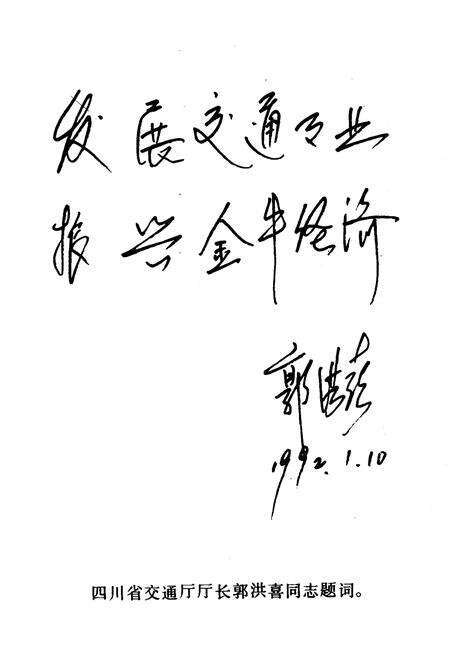 发展交通事业
振兴金牛经济
郭洪喜
1992.1.10
四川省交通厅厅长郭洪喜同志题词。